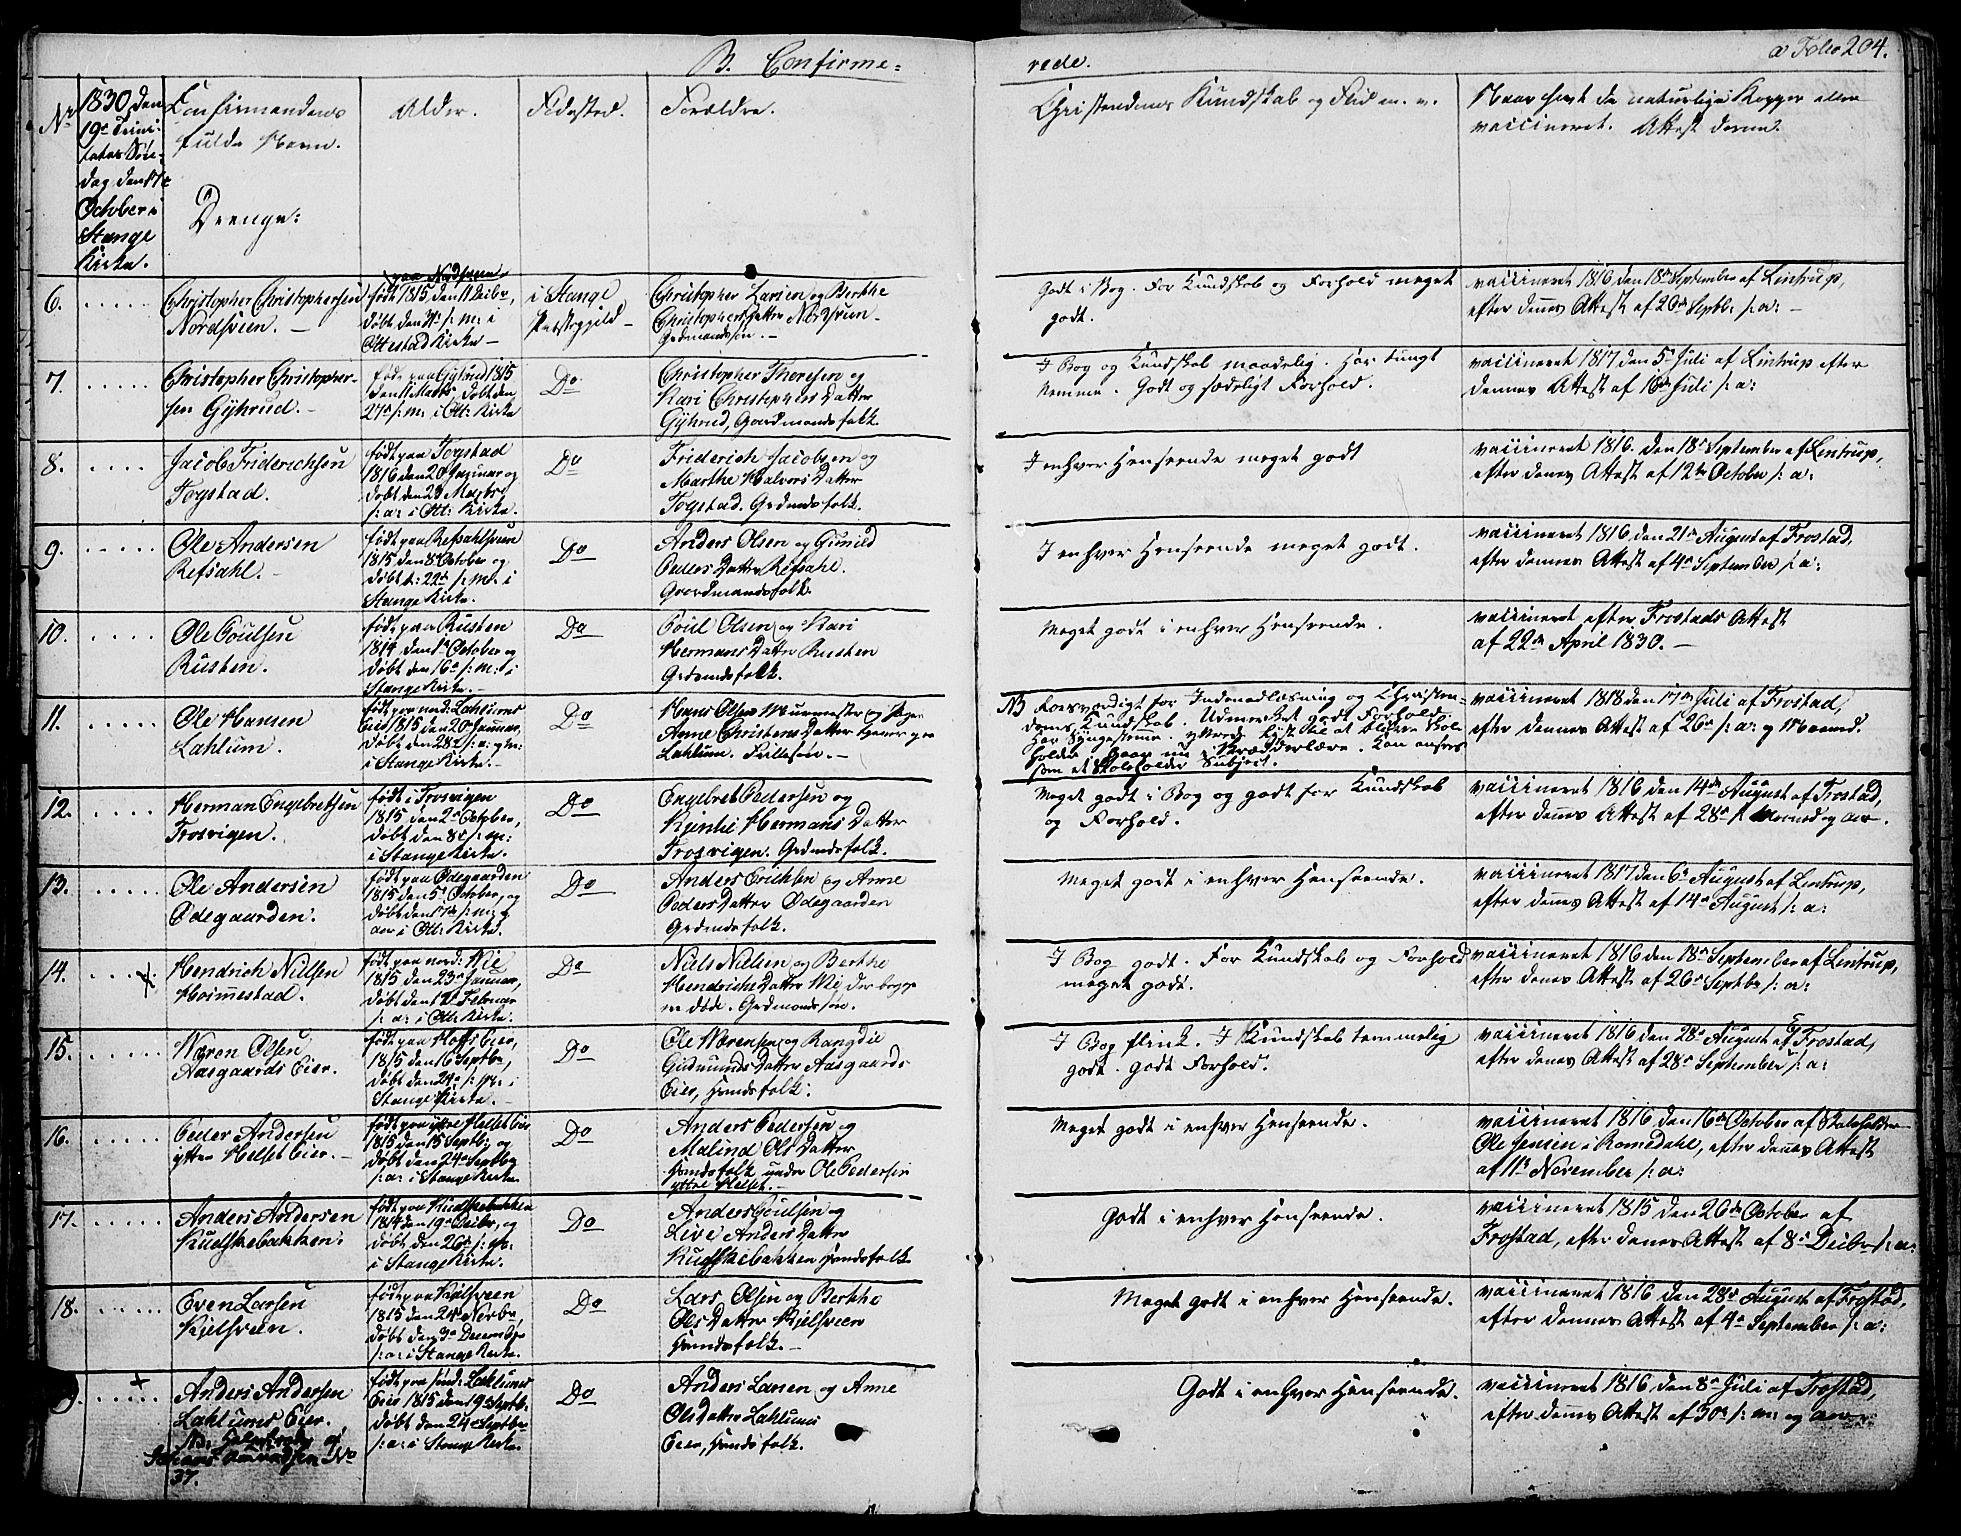 B. Confirme=
rede.
a Folio 204.
No
1830 den
19de Trini-
tatis Søn-
dag den 17de
October i
Stange
Kirke.
Confirmandens
fulde Navn.
Drenge:
Alder.
Fødested.
Forældre.
Christendoms Kundskab og Flid m. v.
Naar havt de naturlige Kopper eller
vaccineret. Attest derom.
6.
Christopher Christophersen
Nordsveen.
født 1815 den 11 Decbr,
døbt den 31te s: m: i
Ottestad Kirke
i Stange
Præstegjeld
Christopher Larsen og Berthe
Christophers Datter Nordsveen
Grdmandssøn.
Godt i Bog. For Kundskab og Forhold meget
godt.
vaccineret 1816 den 18de September af Lintrup,
efter dennes Attest af 26de Septbr s: a:
7.
Christopher Christopher-
sen Gyhrud.
født paa Gyhrud 1815
den 11 Marts, døbt den
27de s: m: i Ott: Kirke
Do
Christopher Thoresen og
Kari Christophers Datter
Gyhrud, Gaardmandsfolk.
I Bog og Kundskab maadelig. Har tungt
Nemme. Godt og sædeligt Forhold.
vaccineret 1817 den 5te Juli af Lintrup efter
dennes Attest af 16de Juli s: a:
8.
Jacob Friderichsen
Togstad.
født paa Togstad
1816 den 20 Januar og
døbt den 23 Marts
s: a: i Ott: Kirke.
Do
Friderich Jacobsen og
Marthe Halvors Datter
Togstad. Grdmdsfolk.
I enhver Henseende meget godt
vaccineret 1816. den 18de September af Lintrup,
efter dennes Attest af 12te October s: a:
9.
Ole Andersen
Refsahl.
født paa Refsahlsveen
1815 den 8de October og
døbt d: 22de s: m: i
Stange Kirke.
Do
Anders Olsen og Gunild
Peders Datter Refsahl.
Gaardmandsfolk.
I enhver Henseende meget godt.
vaccineret 1816 den 21de August af Frostad,
efter dennes Attest af 4de September s: a:
10.
Ole Poulsen
Rusten.
født paa Rusten
1814 den 1te October og
døbt den 16de s: m: i
Stange Kirke.
Do
Poul Olsen og Kari
Hermans Datter Rusten
Grdmdsfolk.
Meget godt i enhver Henseende.
vaccineret efter Frostads Attest
af 22de April 1830.
11.
Ole Hansen
Lahlum.
født paa nord: Lahlums
Eie 1815 den 20de Januar,
døbt den 28de s: a: og m:
i Stange Kirke.
Do
Hans Olsen Murmester og Pige
Anne Christens Datter
Lahlum.
NB Roesværdigt for Indenadlæsning og Christen-
doms Kundskab. Udmærket godt Forhold.
Har Syngestemme.
som et Skoleholder Subject.
vaccineret 1818 den 17de Juli af Frostad,
efter dennes Attest af 26de s: a: og Maaned.
12.
Herman Engebretsen
Frosvigen.
født i Frosvigen
1815 den 2de October,
døbt den 8de s: m:
i Stange Kirke.
Do
Engebret Pedersen og
Kjersti Hermans Datter
Frosvigen. Grdmdsfolk.
Meget godt i Bog og godt for Kundskab
og Forhold.
vaccineret 1816 den 14de August af Frostad,
efter dennes Attest af 28de s: Maaned og Aar.
13.
Ole Andersen
Ødegaarden.
født paa Ødegaarden
1815 den 5te October, og
døbt den 17de s: m: og
aar i Ott: Kirke.
Do
Anders Erichsen og Anne
Peders Datter Ødegaarden
Grdmdsfolk.
Meget godt i enhver Henseende.
vaccineret 1817 den 6te August af Lintrup,
efter dennes Attest af 14de August s: a:
14.
Hendrich Nilsen
Hormestad.
født paa nord: Wie
1815 den 23de Januar,
døbt den 12te Februar
s: a: i Ott: Kirke.
Do
Niels Nilsen og Berthe
Hendrichs Datter Wie, der begge
ere døde. Grdmandssøn.
I Bog godt. For Kundskab og Forhold
meget godt.
vaccineret 1816 den 18de September af Lintrup,
efter dennes Attest af 26de Septbr s: a:
15.
Næren Olsen
Aasgaards Eier.
født paa Hoffs Eier,
1815 den 16 Septbr,
døbt den 24de s: m: i
Stange Kirke.
Do
Ole Nærensen og Rangdie
Gudmunds Datter Aasgaards
Eier, Huusfolk.
I Bog flink. I Kundskab temmelig
godt. godt Forhold.
vaccineret 1816 den 28de August af Frostad,
efter dennes Attest af 28de September s: a:
16.
Peder Andersen
yttre Helset Eier.
født paa yttre Helset Eie
1815 den 15 Septbr og
døbt den 24de Septbr
s: a: i Stange Kirke
Do
Anders Pedersen og
Malene Ols Datter
Huusfolk under Ole Pedersen
yttre Helset.
Meget godt i enhver Henseende.
vaccineret 1816 den 16de October af Skoleholder
Ole Jensen i Romedahl, efter dennes Attest
af 11te November s: a:
17.
Anders Andersen
Kudskebakken.
født paa Kudskebakken
1814 den 19de Decbr, og
døbt den 26de s: m:
i Stange Kirke.
Do
Anders Poulsen og
Live Anders Datter
Kudskebakken Huusfolk
Godt i enhver Henseende.
vaccineret 1815 den 26de October af
Frostad, efter dennes Attest af 8de Decbr s: a:
18.
Even Larsen
Kjelsveen.
født paa Kjelsveen
1815 den 24de Novbr,
døbt den 3de December
s: a: i Stange Kirke.
Do
Lars Olsen og Berthe
Ols Datter Kjelsveen
Huusfolk.
Meget godt i enhver Henseende.
vaccineret 1816 den 28de August af Frostad,
efter dennes Attest af 4de September s: a:
Anders Andersen
Lahlums Eier.
37.
født paa sønd: Lahlums
Eie 1815 den 19de Septbr.
døbt den 24de Septbr
s: a: i Stange Kirke
Do
Anders Larsen og Anne
Ols Datter Lahlums
Eier, Huusfolk.
Godt i enhver Henseende.
vaccineret 1816 den 8de Juli af Frostad,
efter dennes Attest af 30te s: m: og aar.